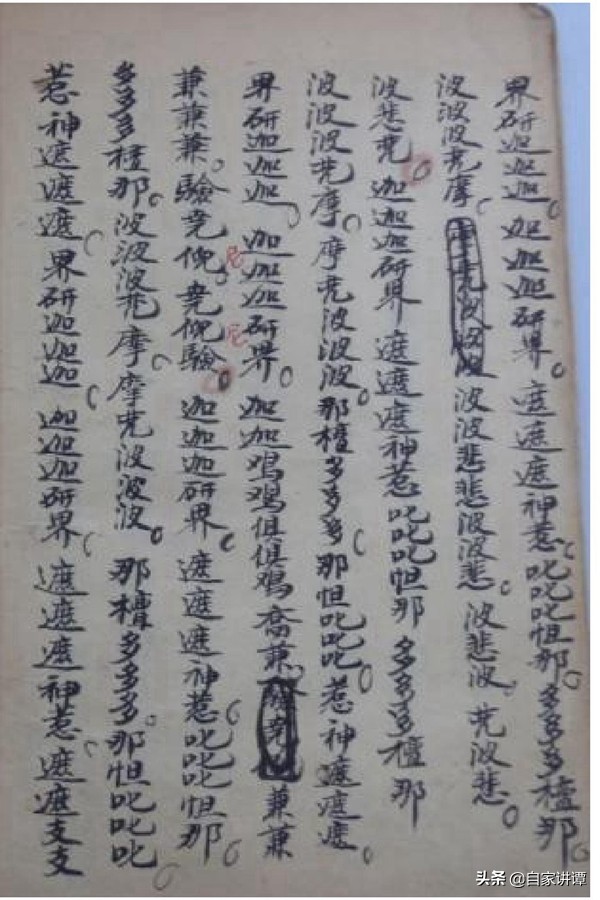 界研迦迦迦。迦迦迦研界。遮遮遮神惹。叱叱叱怛那。多多多檀那。
波波波梵摩。波波悲悲波波悲。波悲波。梵波悲。
波悲梵。迦迦迦研界 遮遮遮神惹 叱叱叱怛那 多多多檀那
波波波梵摩。摩梵波波波。那檀多多多。那怛叱叱叱。惹神遮遮遮。
界研迦迦迦。迦迦迦研界。迦迦鸡鸡俱俱鸡喬兼。兼兼
兼兼兼。驗堯倪。堯倪驗。迦迦迦研界。遮遮遮神惹。叱叱叱怛那。
多多多檀那。波波波梵摩。摩梵波波波。那檀多多多。那怛叱叱叱。
惹神遮遮遮。界研迦迦迦。迦迦迦研界。遮遮遮神惹。遮遮支支
头条 @自家讲谭